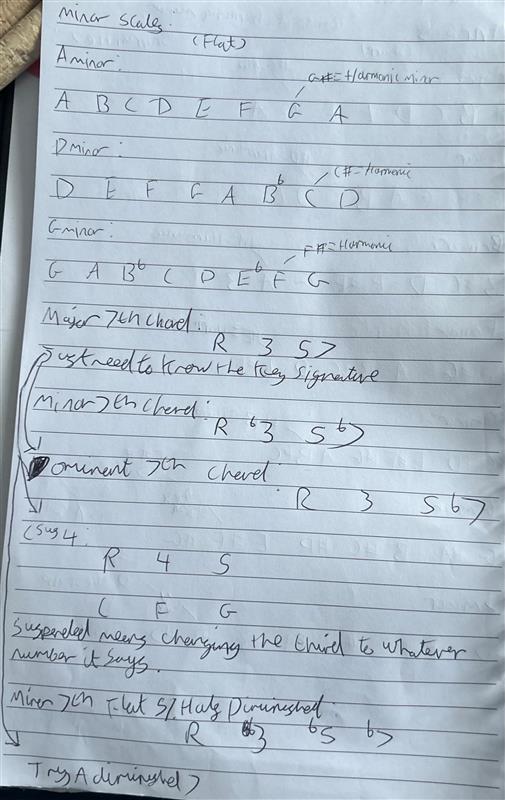 Minor scales:
(Flat)
A minor:
G#=Harmonic Minor
A B C D E F G A
D minor:
C#=Harmonic
D E F G A Bb C D
G minor:
F#=Harmonic
G A Bb C D Eb F G
Major 7th Chord:
R 3 5 7
Just need to know the key signature
Minor 7th Chord:
R b3 5 b7
Dominent 7th chord:
R 3 5 b7
Csus4:
R 4 5
C F G
Suspended means changing the third to whatever
number it says.
Minor 7th Flat 5/Half Diminished:
R b3 b5 b7
Try A diminished 7